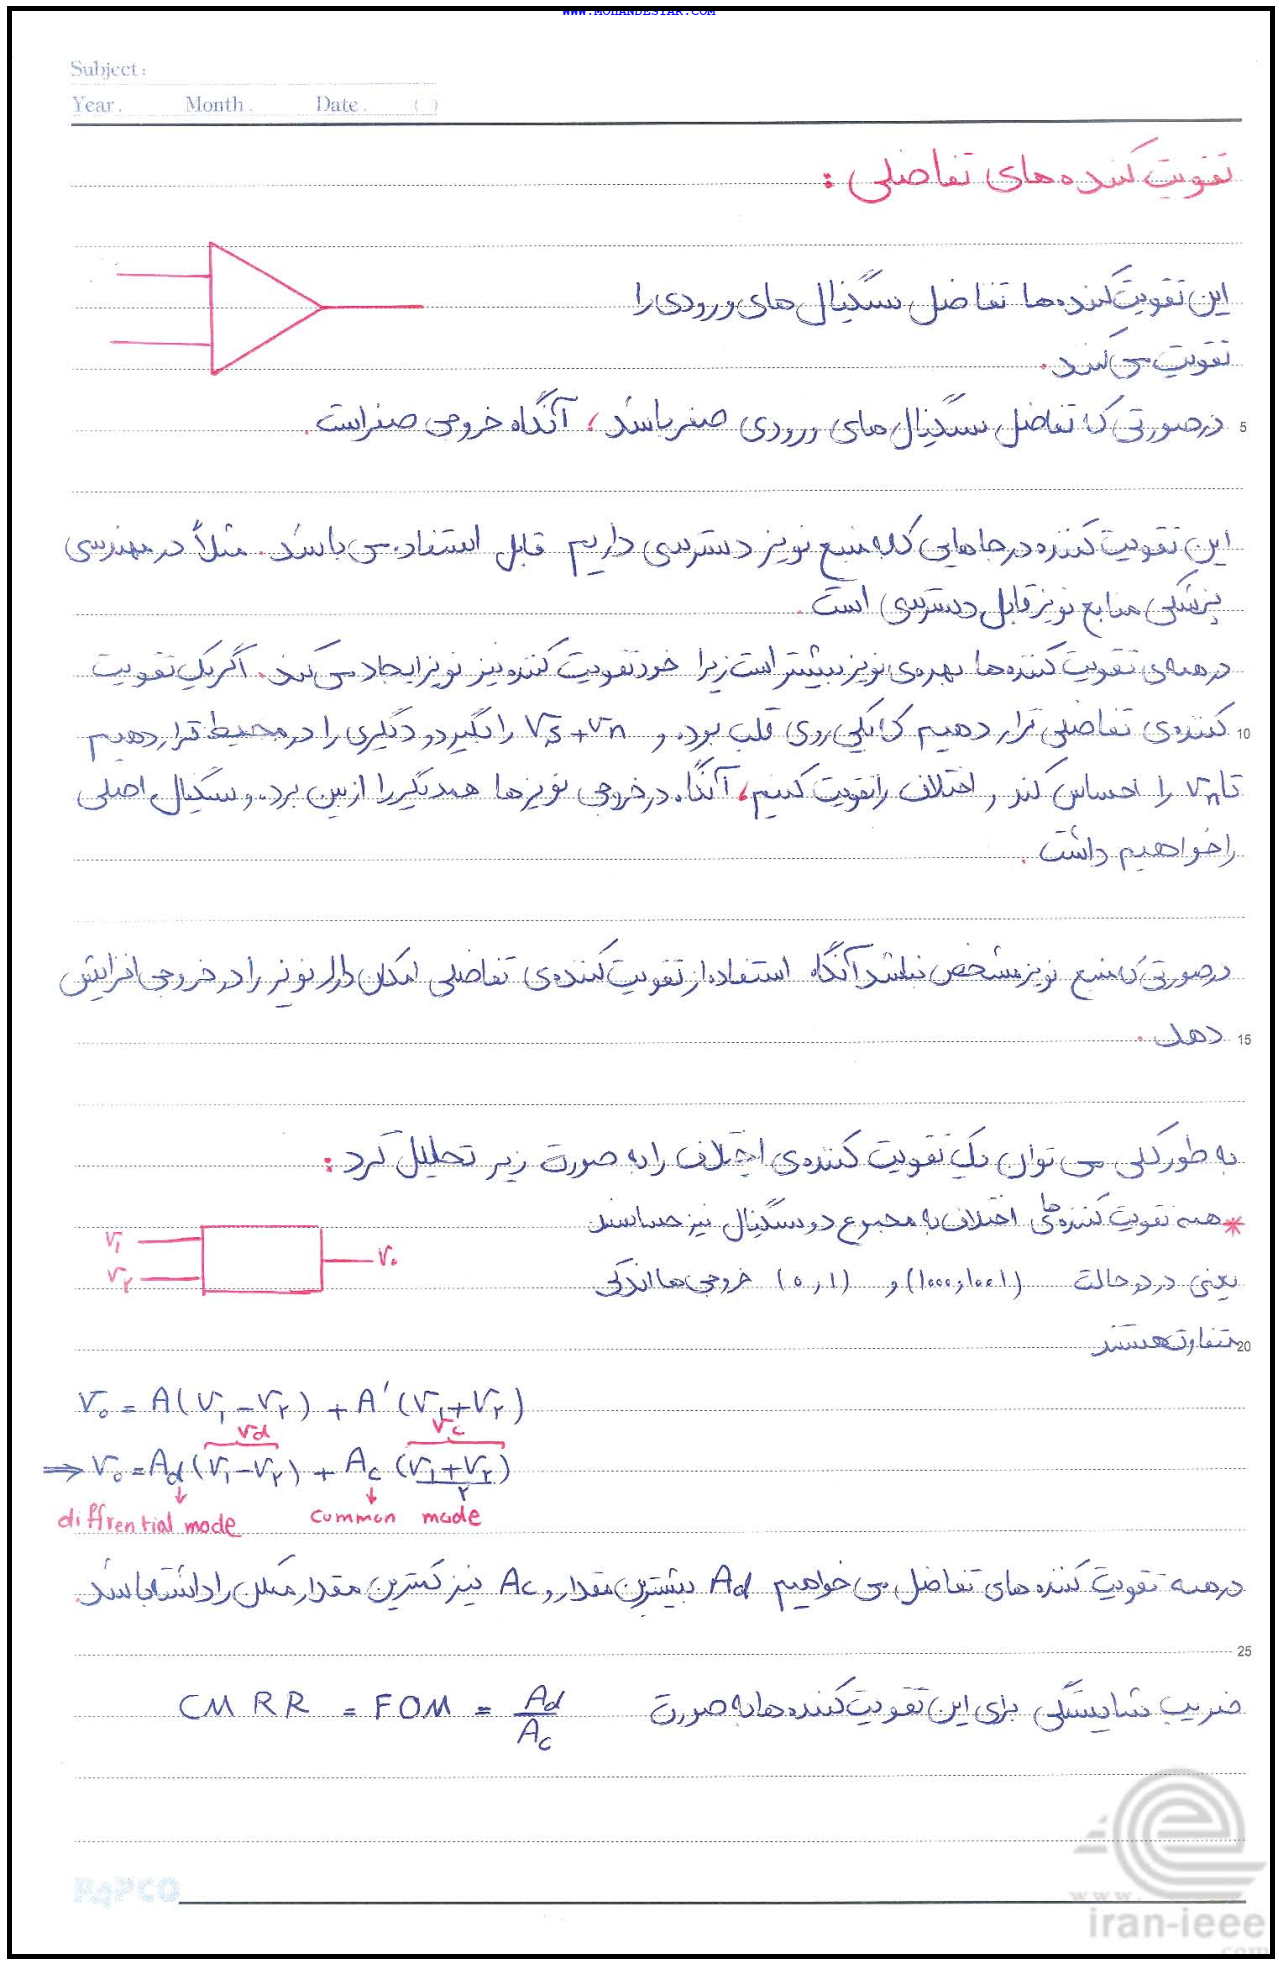 WWW.MOHANDESYAR.COM
Subject:
Year. Month. Date. ( )
تقویت کننده های تفاضلی :
این تقویت کننده ها تفاضل سیگنال های ورودی را
تقویت می کنند.
در صورتی که تفاضل سیگنال های ورودی صفر باشد، آنگاه خروجی صفر است.
5
این تقویت کننده در جاهایی که به منبع نویز دسترسی داریم قابل استفاده می باشد. مثلاً در مهندسی
پزشکی منابع نویز قابل دسترسی است.
در همه ی تقویت کننده ها بهره ی نویز بیشتر است زیرا خود تقویت کننده نیز نویز ایجاد می کند. اگر یک تقویت
کننده ی تفاضلی قرار دهیم که یکی روی قلب بوده و Vs + Vn را بگیرد و دیگری را در محیط قرار دهیم
10
تا Vn را احساس کند و اختلاف را تقویت کنیم، آنگاه در خروجی نویزها همدیگر را از بین برده و سیگنال اصلی
را خواهیم داشت.
در صورتی که منبع نویز مشخص نباشد آنگاه استفاده از تقویت کننده ی تفاضلی امکان دارد نویز را در خروجی افزایش
دهد.
15
به طور کلی می توان یک تقویت کننده ی اختلاف را به صورت زیر تحلیل کرد :
* همه تقویت کننده های اختلاف به مجموع دو سیگنال نیز حساسند
V۱ V۲ V۰
یعنی در دو حالت (۱۰۰۰,۱۰۰۱) و (۰,۱) خروجی ها اندکی
متفاوت هستند
20
V۰ = A(V۱ − V۲) + A'(V۱ + V۲)
Vd Vc
⇒ V۰ = Ad (V۱ − V۲) + Ac ((V۱ + V۲)/۲)
diffrential mode common mode
در همه تقویت کننده های تفاضل می خواهیم Ad بیشترین مقدار و Ac نیز کمترین مقدار ممکن را داشته باشد.
25
ضریب شایستگی برای این تقویت کننده ها به صورت CMRR = FOM = Ad/Ac
PAPCO
www.
iran-ieee
.com